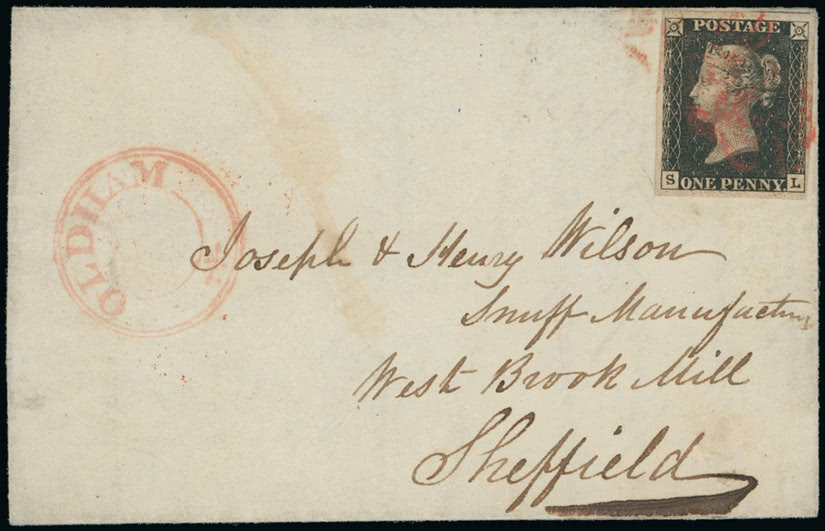 POSTAGE
S ONE PENNY L
OLDHAM
Joseph & Henry Wilson
Snuff Manufacturing
West Brook Mill
Sheffield